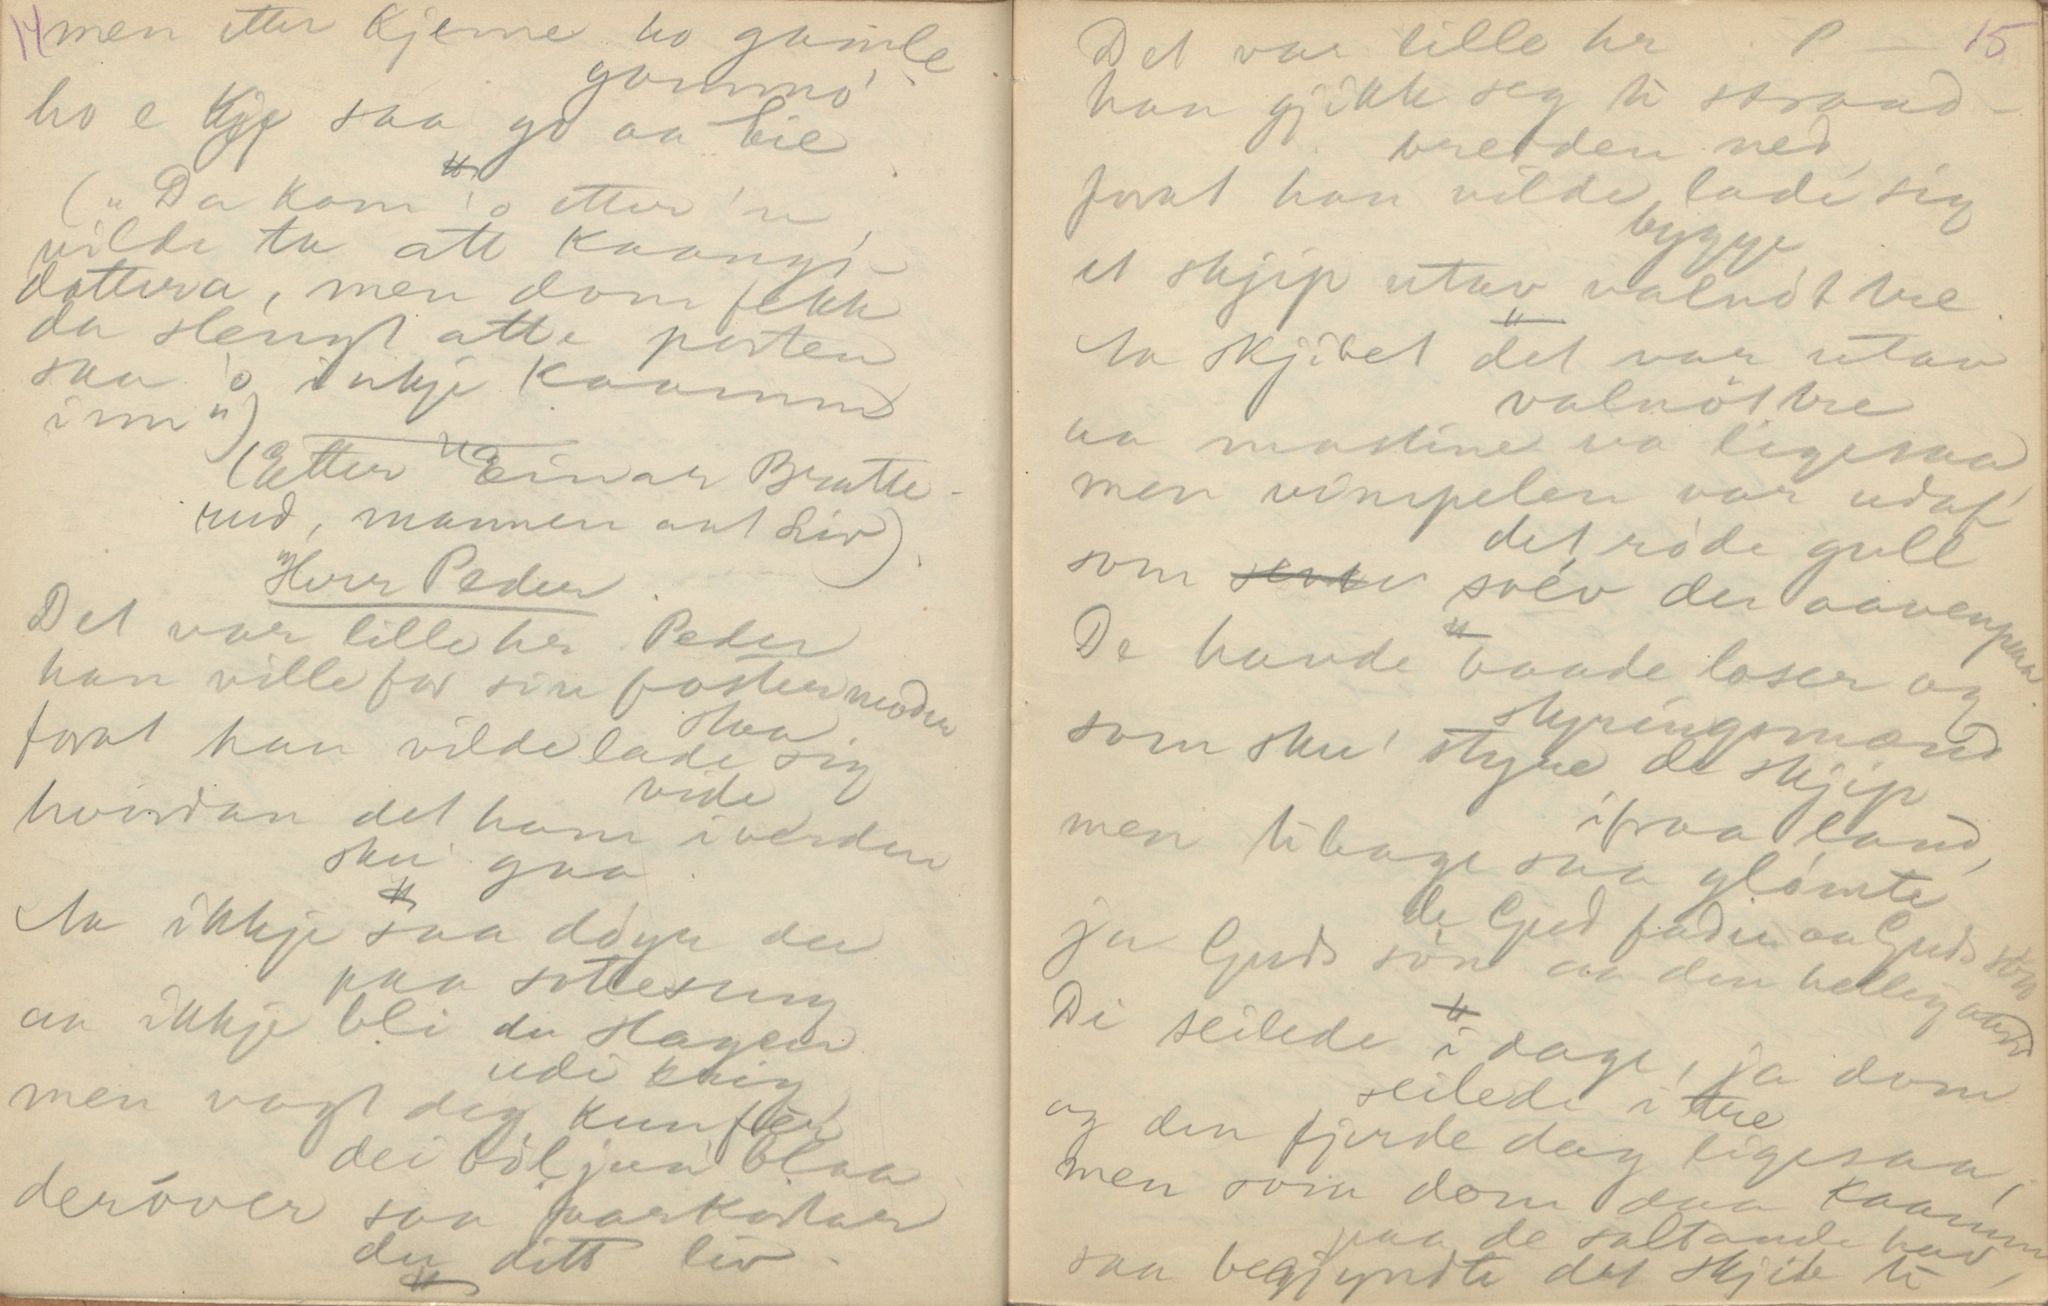 14
men etter kjeme ho gamle
gommó
ho e kje saa go aa bie
("Da kom 'o etter 'n,
vilde ta att Kaangs-
dottera, men dom fekk
da slengt atte porten
saa 'o inkje kaamm
inn")
(Etter Einar Bratte-
rud, mannen aat Liv).
"Herr Peder.
Det var lille hr. Peder
han ville for sin fostermoder
staa
forat han vilde lade sig
vide
hvordan det ham i verden
sku' gaa.
Aa ikkje saa døyr du
paa sotteseng
aa ikkje bli du slagen
udi krig
men vogt deg kun fer
dei böljun blaa
deróver saa forkortar
du ditt liv.
15
Det var lille hr P —
han gjikk seg ti strand-
bredden ned
forat han vilde lade sig
bygge
et skjip utav valnöt tre.
Aa skjibet det var utav
valnöt tre
aa mastine va ligesaa
men vimpelen var udaf
det röde gull
som sólv der aavenpaa.
De havde baade loser og
styringsmænd
som sku' styre de skjip
ifraa land,
men tibage saa glömte
de Gud fader aa Guds sön
ja Guds sön aa den hellig aand
Di seilede i dage, ja dom
seilede i tre
og den fjerde dag ligesaa,
men som dom daa kaamm
paa de saltande hav,
saa begjyndte det skjib ti